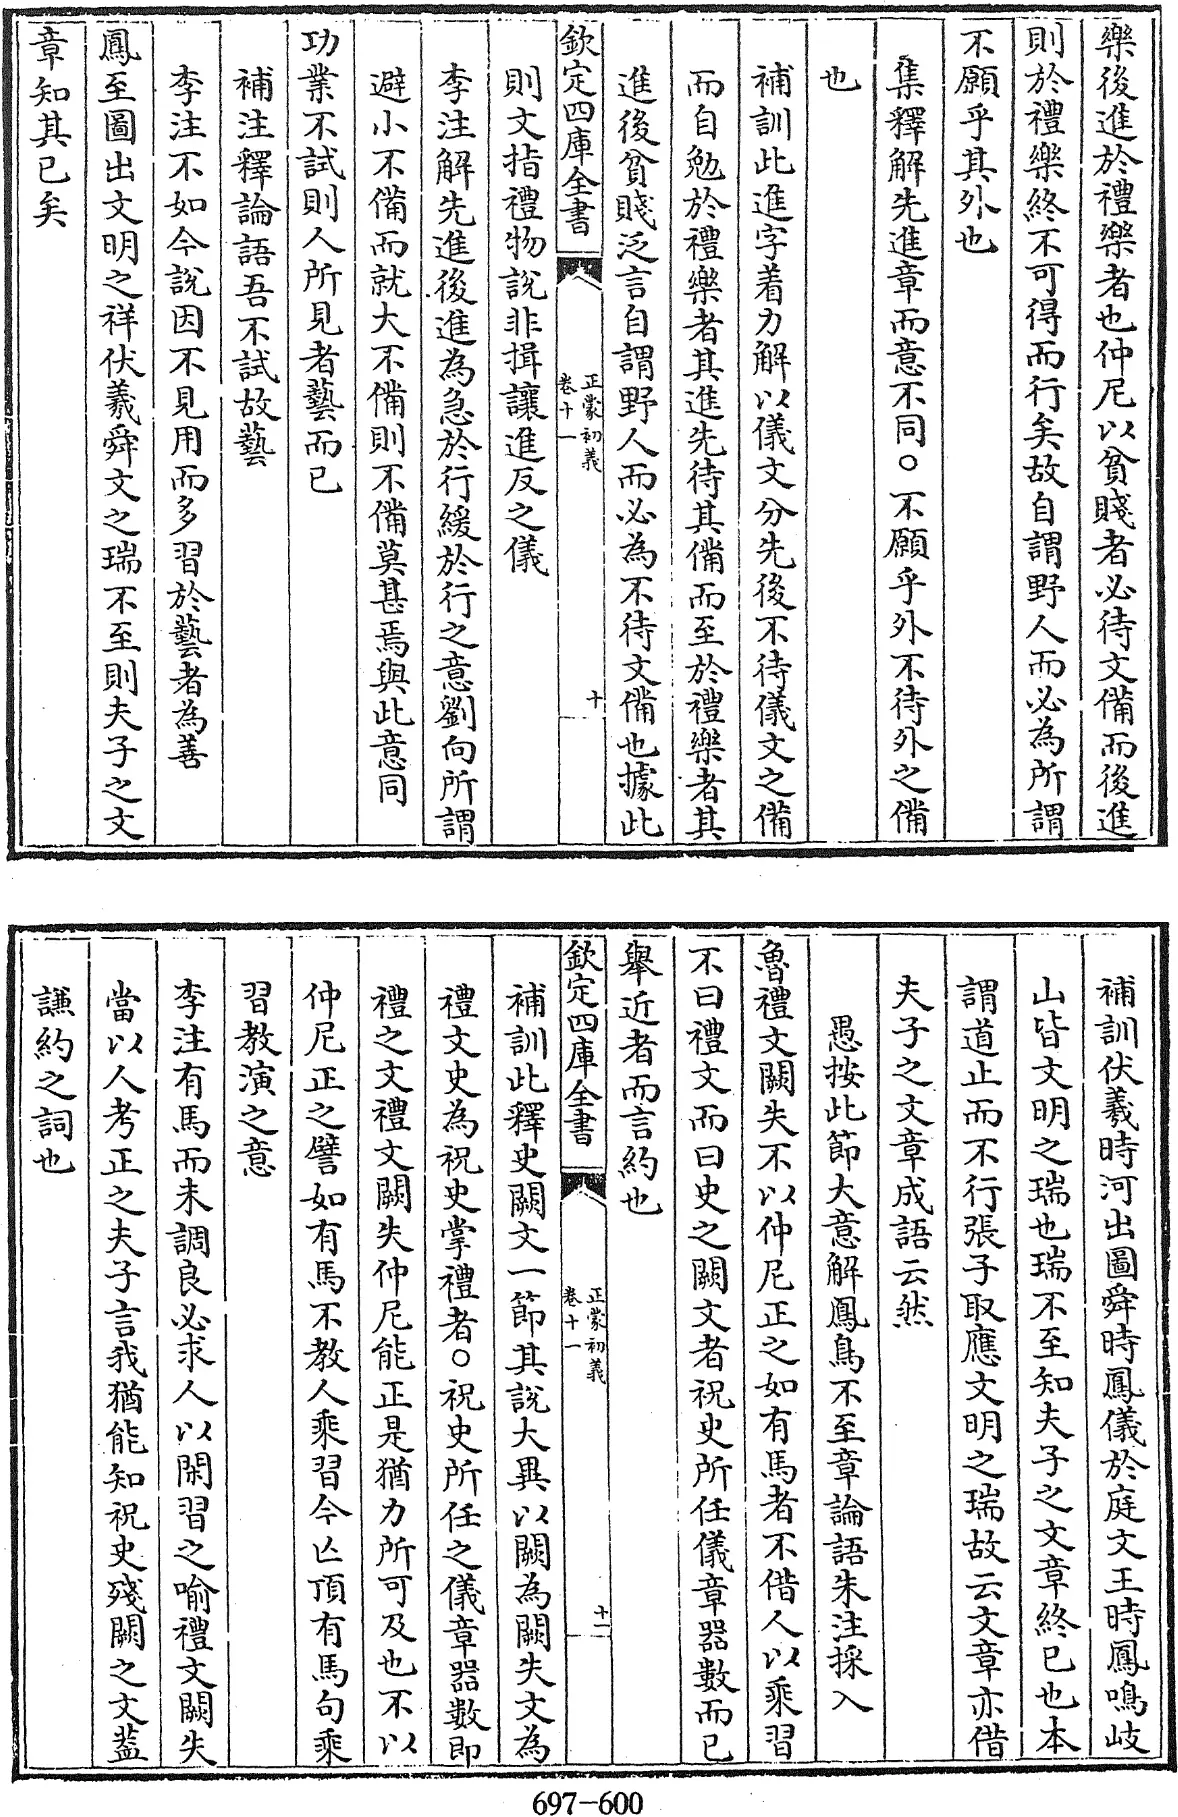 樂後進於禮樂者也仲尼以貧賤者必待文備而後進
則於禮樂終不可得而行矣故自謂野人而必為所謂
不願乎其外也
集釋解先進章而意不同○不願乎外不待外之備
也
補訓此進字着力解以儀文分先後不待儀文之備
而自勉於禮樂者其進先待其備而至於禮樂者其
進後貧賤泛言自謂野人而必為不待文備也據此
欽定四庫全書
正蒙初義
卷十一
十
則文指禮物說非揖讓進反之儀
李注解先進後進為急於行緩於行之意劉向所謂
避小不備而就大不備則不備莫甚焉與此意同
功業不試則人所見者藝而已
補注釋論語吾不試故藝
李注不如今說因不見用而多習於藝者為善
鳳至圖出文明之祥伏羲舜文之瑞不至則夫子之文
章知其已矣
補訓伏羲時河出圖舜時鳳儀於庭文王時鳳鳴岐
山皆文明之瑞也瑞不至知夫子之文章終已也本
謂道止而不行張子取應文明之瑞故云文章亦借
夫子之文章成語云然
愚按此節大意解鳳鳥不至章論語朱注採入
魯禮文闕失不以仲尼正之如有馬者不借人以乘習
不曰禮文而曰史之闕文者祝史所任儀章器數而已
舉近者而言約也
欽定四庫全書
正蒙初義
卷十一
十一
補訓此釋史闕文一節其說大異以闕為闕失文為
禮文史為祝史掌禮者○祝史所任之儀章器數即
禮之文禮文闕失仲尼能正是猶力所可及也不以
仲尼正之譬如有馬不教人乘習今亾頂有馬句乘
習教演之意
李注有馬而未調良必求人以閑習之喻禮文闕失
當以人考正之夫子言我猶能知祝史殘闕之文葢
謙約之詞也
697-600